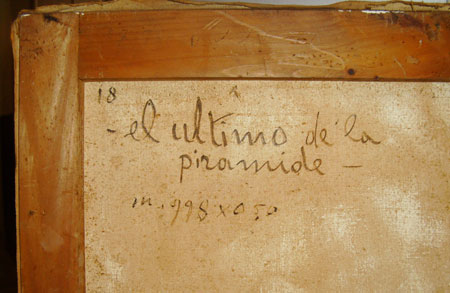 18
- el ultimo de la
piramide -
m. 998 x 0 50